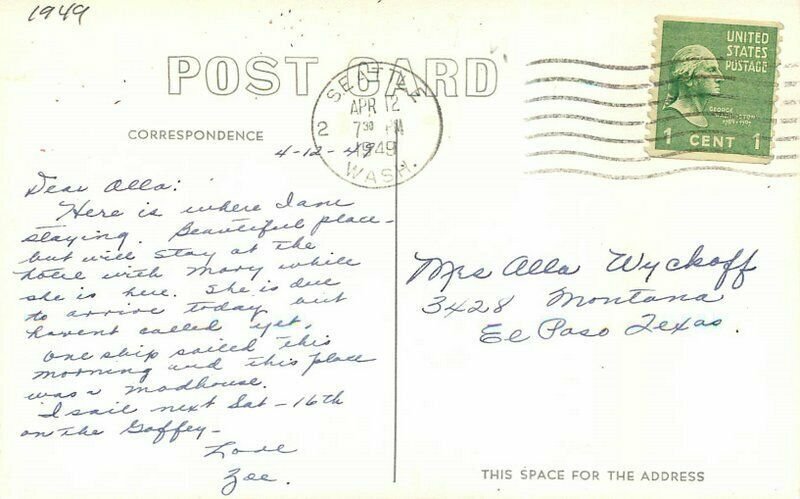 1949
POST CARD
SEATTLE
APR 12
2 7 30 PM
1949
WASH.
UNITED
STATES
POSTAGE
GEORGE
WASHINGTON
1 CENT 1
CORRESPONDENCE
4-12-49
Dear Alla:
Here is where I am
staying. Beautiful place-
but will stay at the
hotel with Mary while
she is here. She is due
to arrive today but
havent called yet.
One ship sailed this
morning and this place
was a madhouse.
I sail next Sat-16th
on the Gaffey-
Love
Zoe.
Mrs Alla Wyckoff
3428 Montana
El Paso Texas.
THIS SPACE FOR THE ADDRESS